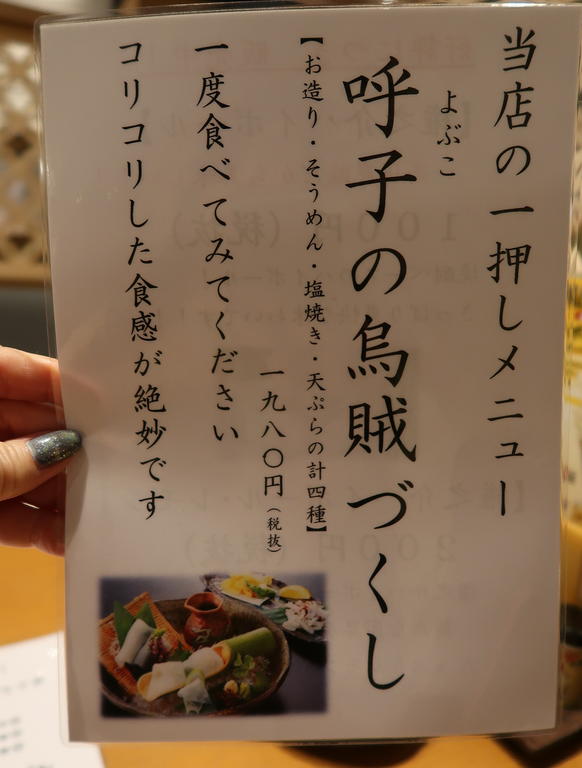 当店の一押しメニュー
よぶこ
呼子の烏賊づくし
【お造り・そうめん・塩焼き・天ぷらの計四種】
一九八〇円（税抜）
一度食べてみてください
コリコリした食感が絶妙です